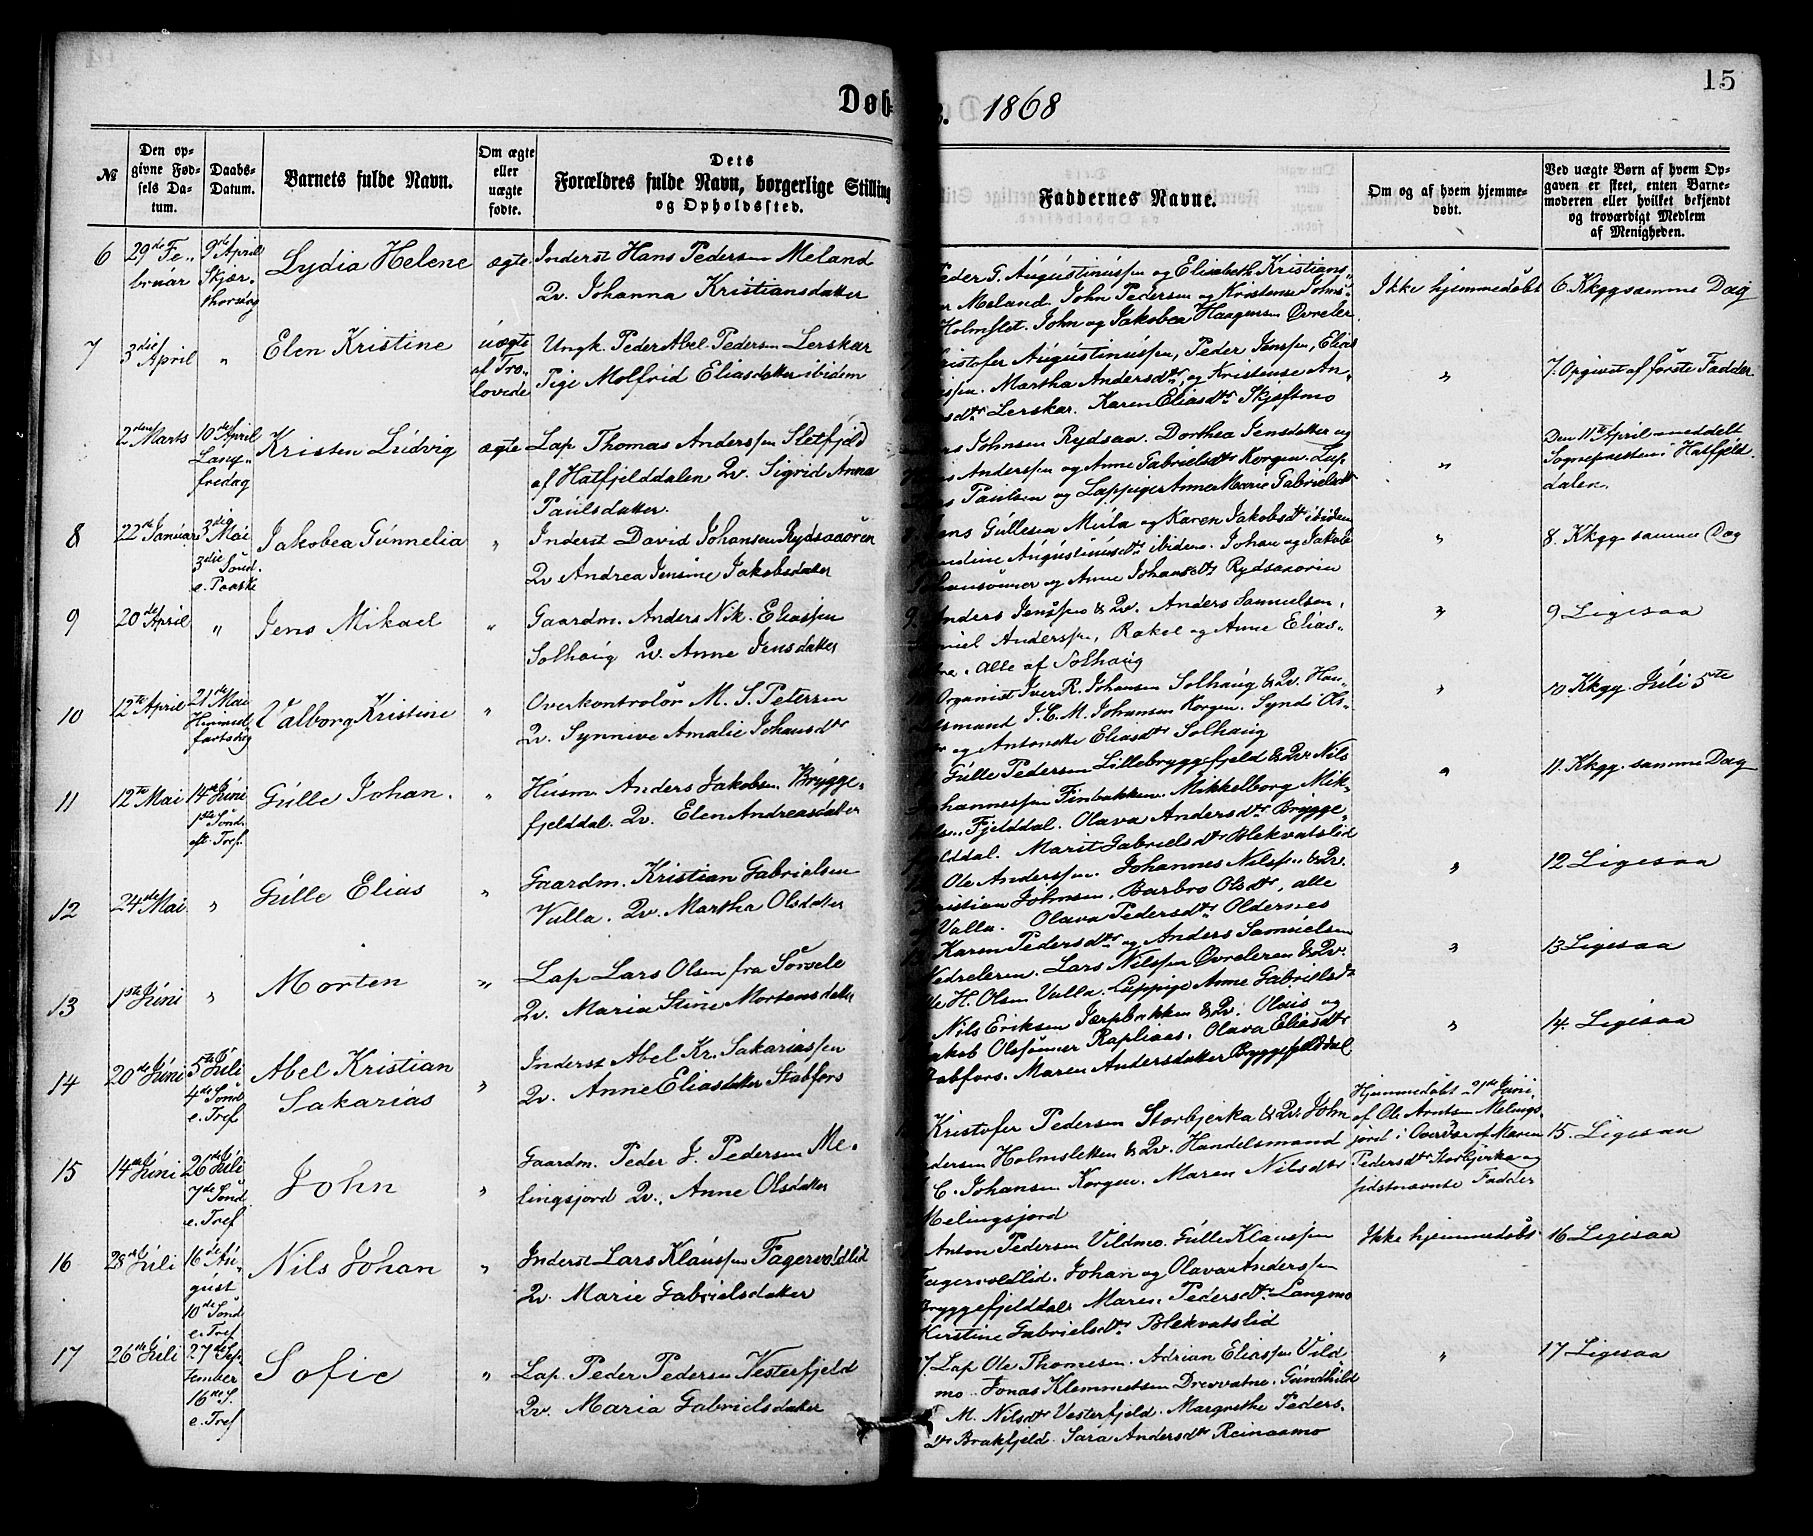 15
Døb- 1868
№
Den op-
givne Fød-
sels Da-
tum.
Daabs-
Datum.
Barnets fulde Navn.
Om ægte
eller
uægte
fødte.
Dets
Forældres fulde Navn, borgerlige Stilling
og Opholdssted.
Faddernes Navne.
Om og af hvem hjemme-
døbt.
Ved uægte Børn af hvem Op-
gaven er skeet, enten Barne-
moderen eller hvilket bekjendt
og troværdigt Medlem
af Menigheden.
6
29de Fe-
bruar
9de April
Skjær-
thorsdag
Lydia Helene
ægte
Inderst Hans Pedersen Meland
Qv. Johanna Kristiansdatter
Peder G. Augustinussen og Elisabeth Kristians-
Meland. John Pedersen og Kristense Johns-
Holmslet. John og Jakobea Haagensen Øvreler.
Ikke hjemmedøbt
6. Kkgg samme Dag
7
3die
April
"
Elen Kristine
uægte
af Tro-
lovede
Ungk. Peder Abel Pedersen Lerskar
Pige Molfrid Eliasdatter ibidem
Kristofer Augustinussen, Peder Jenssen, Elias
Martha Andersdtr og Kristense An-
Lerskar. Karen Eliasdtr Skjeftmo
"
7. Opgivet af første Fadder
2den
Marts
10de April
Lang-
fredag
Kristen Ludvig
ægte
Lap Thomas Anderssen Sletfjeld
af Hatfjelddalen Qv. Sigrid Anna
Paulsdatter.
Johnsen Rydsaa. Dorthea Jensdatter og
Anderssen og Anne Gabrielsdtr Korgen. Lap
Paulsen og Lappige Anne Marie Gabrielsdtr
"
Den 11te April meddelt
Sognepresten i Hatfjeld-
dalen.
8
22de Januar
3die
Mai
3die Sønd.
e. Paaske
Jakobea Gunnelia
"
Inderst David Johansen Rydsaaøren
Qv Andrea Jensine Jakobsdatter
Jens Gullesen Mula og Karen Jakobsdtr ibidem
Augustinusdtr ibidem. Johan og Jakob
Johansønner og Anne Johansdtr Rydsaaøren
"
8. Kkgg samme Dag
9
20de April
"
Jens Mikael
"
Gaardm. Anders Nik. Eliassen
Solhaug Qv. Anne Jensdatter
9. Anders Jenssen & Qv. Anders Samuelsen,
Anderssen, Rakel og Anne Elias-
alle af Solhaug
"
9 Ligesaa
10
12te April
21de Mai
Himmel-
fartsdag
Valborg Kristine
"
Overkontrolør M. S. Petersen
Qv. Synnive Amalie Johansdtr
Organist Iver R. Johansen Solhaug & Qv. Han-
delsmand I. C. M. Johansen Korgen. Synde Ols-
og Antonette Eliasdtr Solhaug
"
10 Kkgg Juli 5te
11
12te Mai
14de Juni
1ste Sønd.
eft. Tref.
Gulle Johan.
"
Husm. Anders Jakobsen Brygge-
fjelddal. Qv. Elen Andreasdatter
Gulle Pedersen Lillebryggefjeld & Qv. Nils
Johannessen Finbakken. Mikkelborg Mik-
Fjelddal. Olava Andersdtr Brygge-
fjelddal. Marit Gabrielsdtr Blekvatslid
"
11. Kkgg samme Dag
12
24de Mai
"
Gulle Elias
"
Gaardm. Kristian Gabrielsen
Valla. Qv. Martha Olsdatter
Ole Anderssen. Johannes Nilssen & Qv.
Kristian Johnsen, Barbro Olsdtr, alle
Valla. Olava Pedersdtr Oldernes
"
12 Ligesaa
13
1ste Juni
"
Morten
"
Lap Lars Olsen fra Sorsele
Qv. Maria Stine Mortensdatter
Karen Pedersdtr og Anders Samuelsen
Nedreleren. Lars Nilssen Øvreleren & Qv.
Ole H. Olsen Valla. Lappige Anne Gabrielsdtr
"
13 Ligesaa
14
20de Juni
5te Juli
4de Sønd
e. Tref
Abel Kristian
Sakarias
"
Inderst Abel Kr. Sakariassen
Qv. Anne Eliasdatter Stabfors
Nils Eriksen Jerpbakken & Qv. Olais og
Jakob Olsønner Rapliaas, Olava Eliasdtr
Stabfors. Maren Andersdatter Bryggefjelddal
"
14. Ligesaa
15
14de Juni
26de Juli
7de Sønd
e. Tref
John
"
Gaardm. Peder J. Pedersen Me-
lingsjord Qv. Anne Olsdatter
Kristofer Pedersen Storbjerka & Qv. John
Pedersen Holmsletten & Qv. Handelsmand
C. Johansen Korgen. Maren Nilsdtr
Melingsjord
Hjemmedøbt 21de Juni
af Ole Arntsen Melings-
jord i Overvær af Maren
Pedersdtr Storbjerka og
sidstnævnte Fadder
15. Ligesaa
16
28de Juli
16de Au-
gust
10de Sønd
e. Tref
Nils Johan
"
Inderst Lars Klaussen Fagervoldlid
Qv. Marie Gabrielsdatter
Anton Pedersen Vildmo. Gulle Klaussen
Fagervoldlid. Johan og Olava Anderssen
Bryggefjelddal. Maren Pedersdtr Langmo
Kirstine Gabrielsdtr Blekvatslid
Ikke hjemmedøbt
16 Ligesaa
17
26de Juli
27de Sep-
tember
16de S.
e. Tref
Sofie
"
Lap Peder Pedersen Vesterfjeld
Qv. Maria Gabrielsdatter
17. Lap Ole Thomesen. Adrian Eliassen Vild
mo. Jonas Klemmetsen Drevvatne. Gundhild
M. Nilsdtr Vesterfjeld. Margrethe Peders-
dtr Brakfjeld. Sara Andersdtr Reinaamo
"
17 Ligesaa